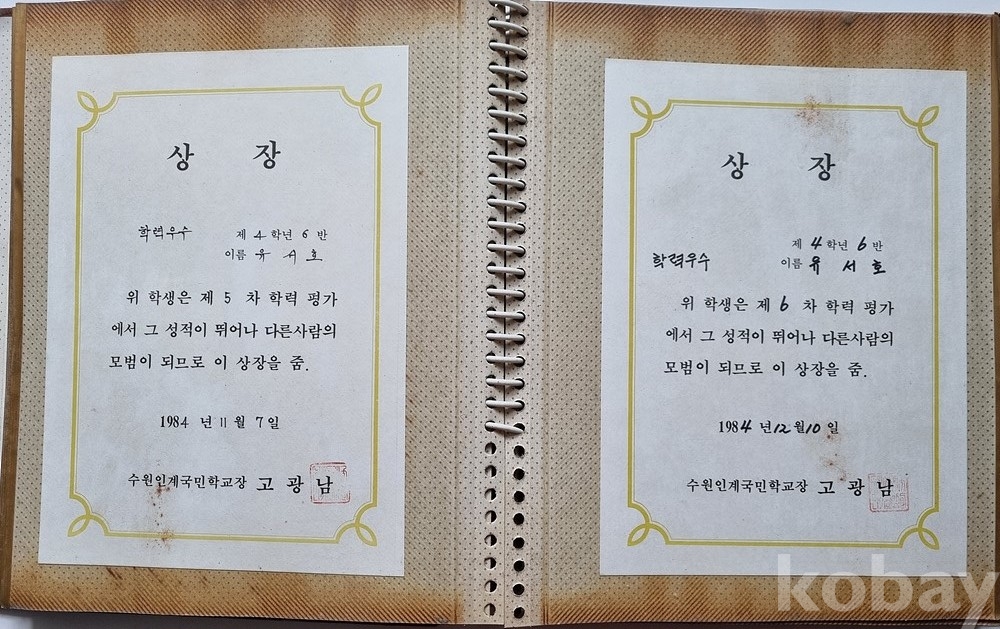 상 장
학력우수
제 4 학년 6 반
이름 유 서 호
위 학생은 제 5 차 학력 평가
에서 그 성적이 뛰어나 다른사람의
모범이 되므로 이 상장을 줌.
1984 년 11 월 7 일
수원인계국민학교장 고 광 남
상 장
제 4 학년 6 반
학력우수
이름 유 서 호
위 학생은 제 6 차 학력 평가
에서 그 성적이 뛰어나 다른사람의
모범이 되므로 이 상장을 줌.
1984 년 12 월 10 일
수원인계국민학교장 고 광 남
kobay